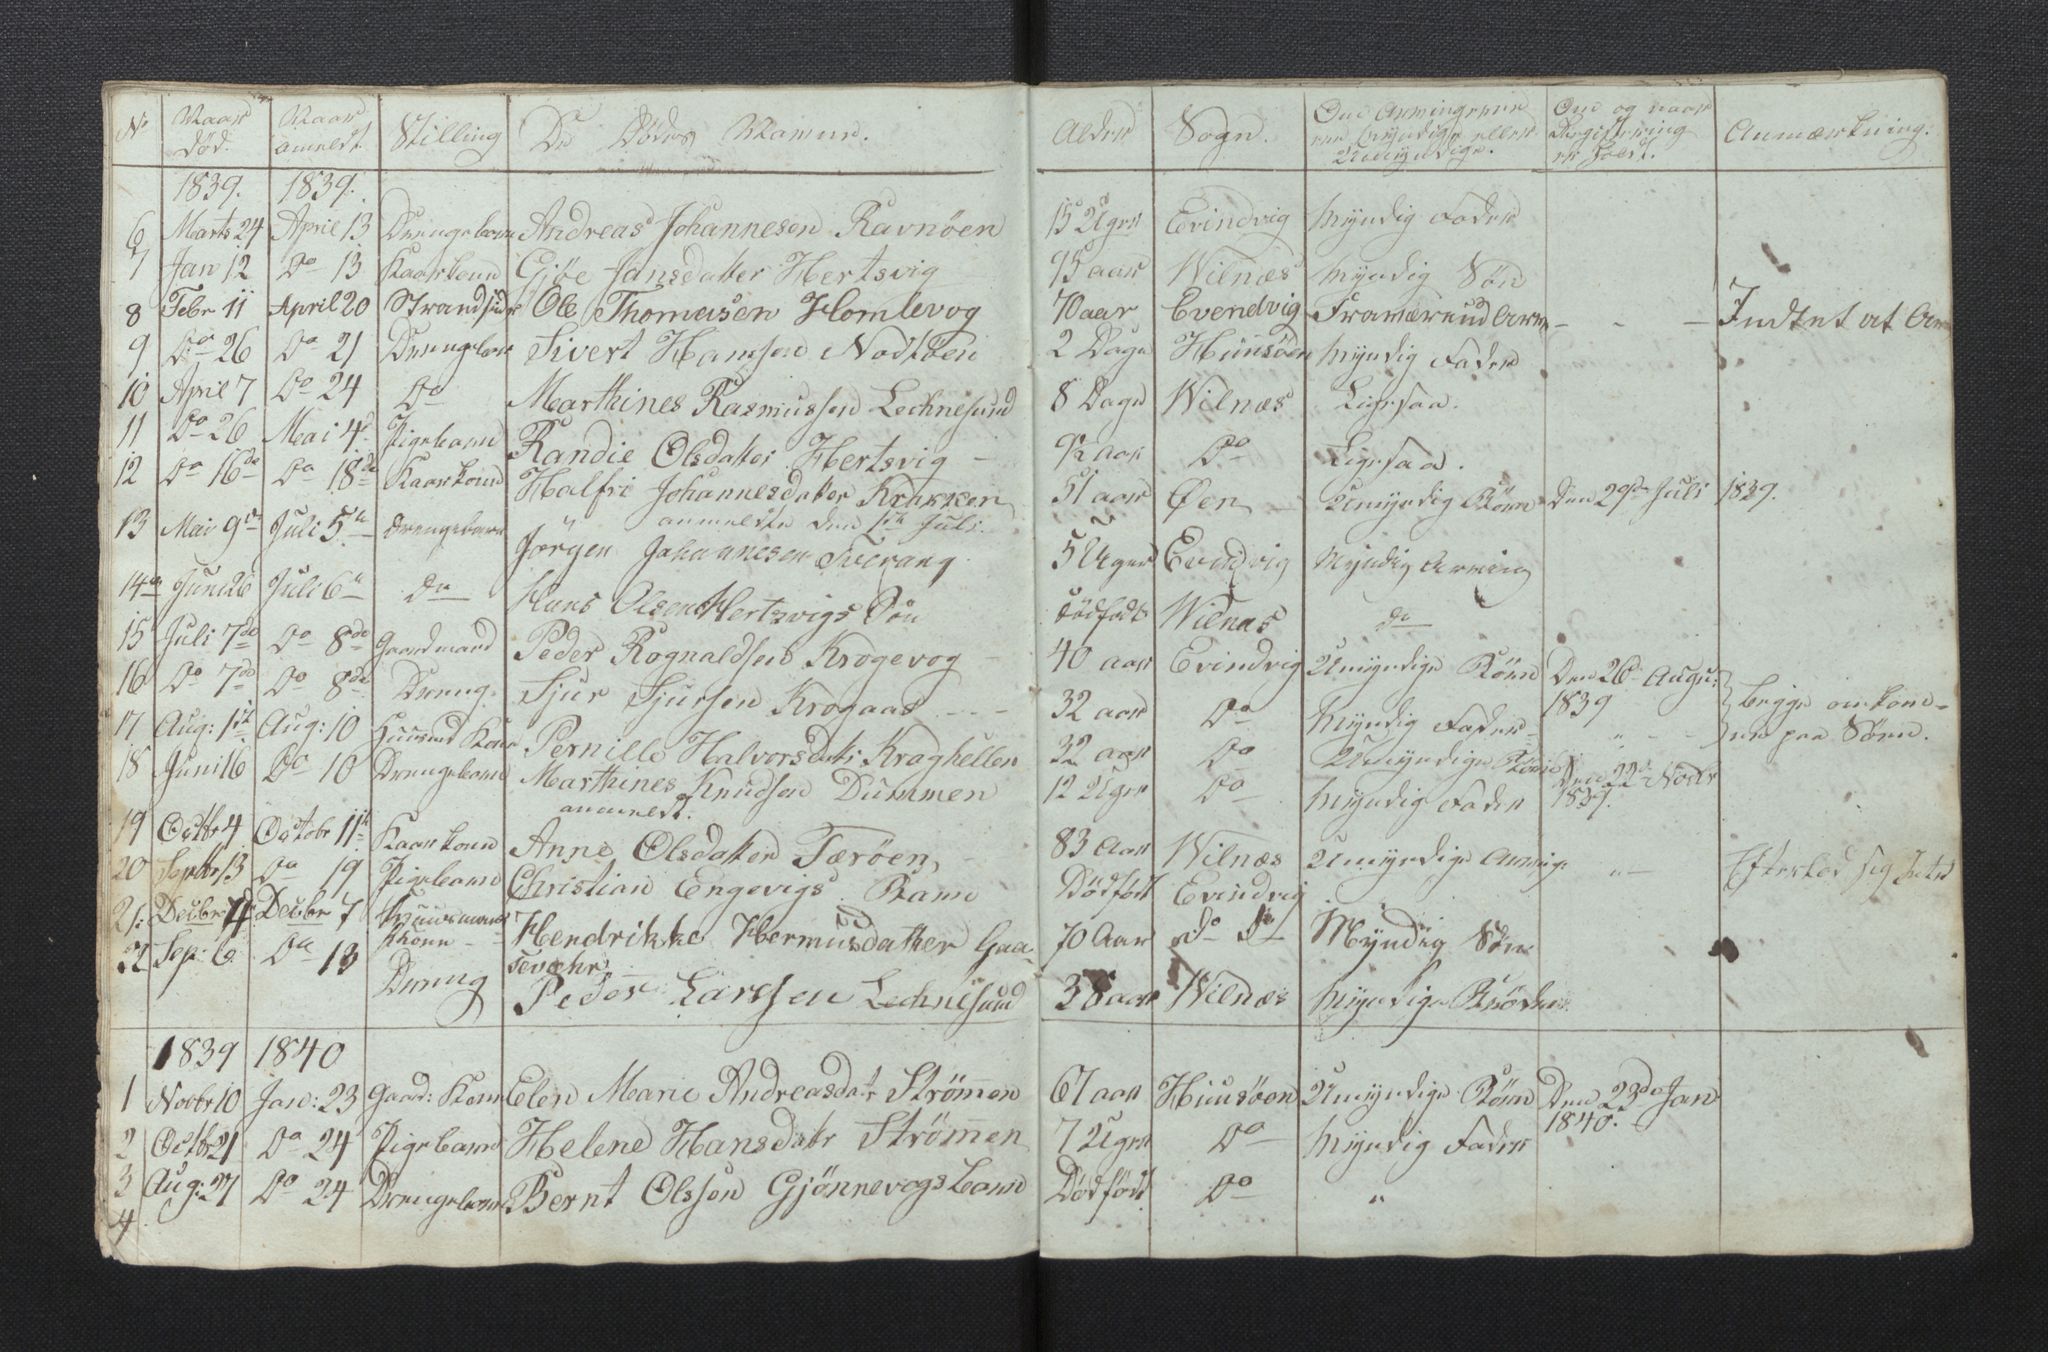 No Naar død. Naar anmeldt. Stilling De Dødes Navne. Alder Sogn. Om Arvingerne ere Myndige eller Umyndige. Om og naar Registrering er skeet. Anmærkning.
1839. 1839.
6 Marts 24 April 13 Drengebarn Andreas Johannesen Ravnöen 15 Uger Evindvig Myndig Fader
7 Jan 12 Do 13 Kaarkone Gjöe Jansdatter Hertsvig 95 aar Wilnæs Myndig Sön
8 Febr 11 April 20 Strandsid Ole Thomasen Homlevog 70 aar Evendvig Indtet at
9 Do 26 Do 21 Drengebarn Sivert Hansen Nodtöen 2 Dage Huusöen Myndig Fader
10 April 7 Do 24 Do Marthines Rasmussen Lechnesund 8 Dage Wilnæs Ligesaa.
11 Do 26 Mai 4 Pigebarn Randie Olsdatter Hertsvig 9/12 aar Do Ligesaa.
12 Do 16de Do 18de Kaarkone Halfri Johannesdatter Krakken 51 aar Øen Umyndig Börn Den 29de Juli 1839.
anmeldte den 1ste Juli.
13 Mai 9de Juli 5te Drengebarn Jörgen Johannesen Tverang 5 Uger Evindvig Myndig Arving
14 Juni 26 Juli 6te do Hans Olsen Hertsvigs Sön dödfödt Wilnæs do
15 Juli 7de Do 8de Gaardmand Peder Rognaldsen Krogevog 40 aar Evindvig Umyndige Börn Den 26 Augu:
1839
16 Do 7de Do 8de Dreng. Sjur Sjursen Krogaas 32 aar Do Myndig Fader begge omkom-
ne paa Söen.
17 Aug: 1ste Aug: 10 Huusmd Kone Pernille Halvorsdatr Kraghellen 32 aar Do Umyndige Börn Den 22de Novbr
1839.
18 Juni 16 Do 10 Drengebarn Marthines Knudsen Dummen 12 Uger Do Myndig Fader
anmeldt.
19 Octbr 4 Octobr 11te Kaarkone Anne Olsdatter Færöen 83 Aar Wilnæs Umyndige Arving: Efterlod sig Intet
20 Septbr 13 Do 19 Pigebarn Christian Engevigs Barn Dödfödt Evindvig
21: Decbr 4 Decbr 7 Huusmands Kone Hendrikke Hermusdatter Gaa-
sevær 70 Aar do do Myndig Sön
22 Sep: 6 Do 13 Dreng Peder Larssen Lechnesund 38 aar Wilnæs Myndige Brödre
1839 1840
1 Novbr 10 Jan: 23 Gaad: Kone Elen Marie Andreasdatr Strömen 67 aar Huusöen Umyndige Börn Den 23de Jan
1840.
2 Octbr 21 Do 24 Pigebarn Helene Hansdatr Strömen 7 Uger Do Myndig Fader
3 Aug: 27 Do 24 Drengebarn Bernt Olssen Gjönnevogs barn Dödfödt Do "
4